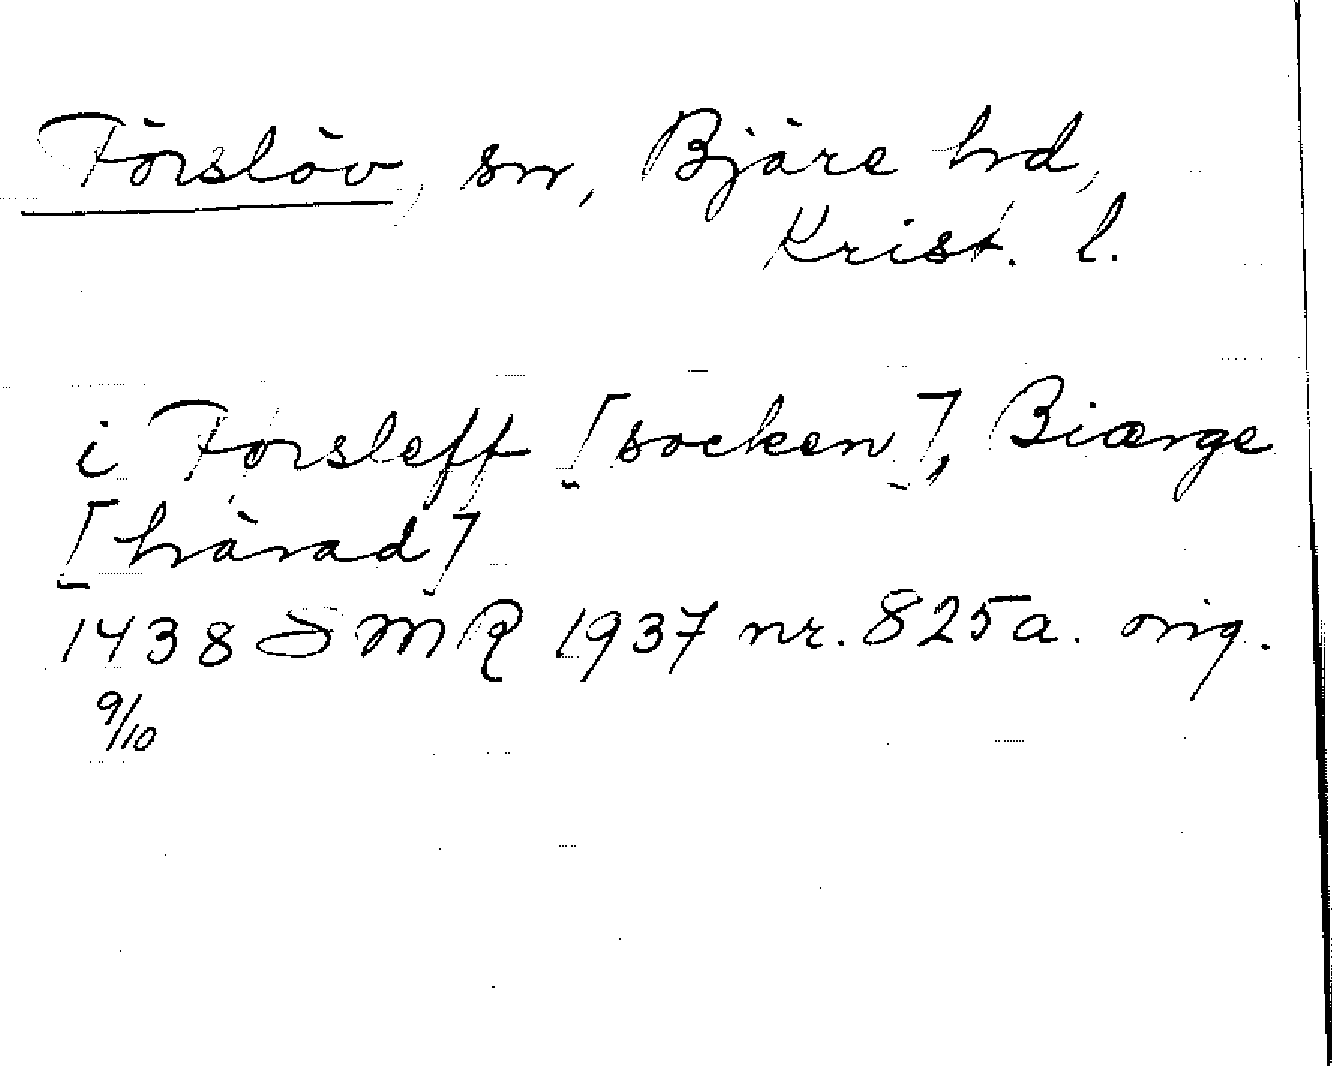 Förslöv, sn, Bjäre hd,
Krist. l.
i Forsleff [socken], Biærge
[härad]
1438 SMR 1937 nr. 825a. orig.
9/10